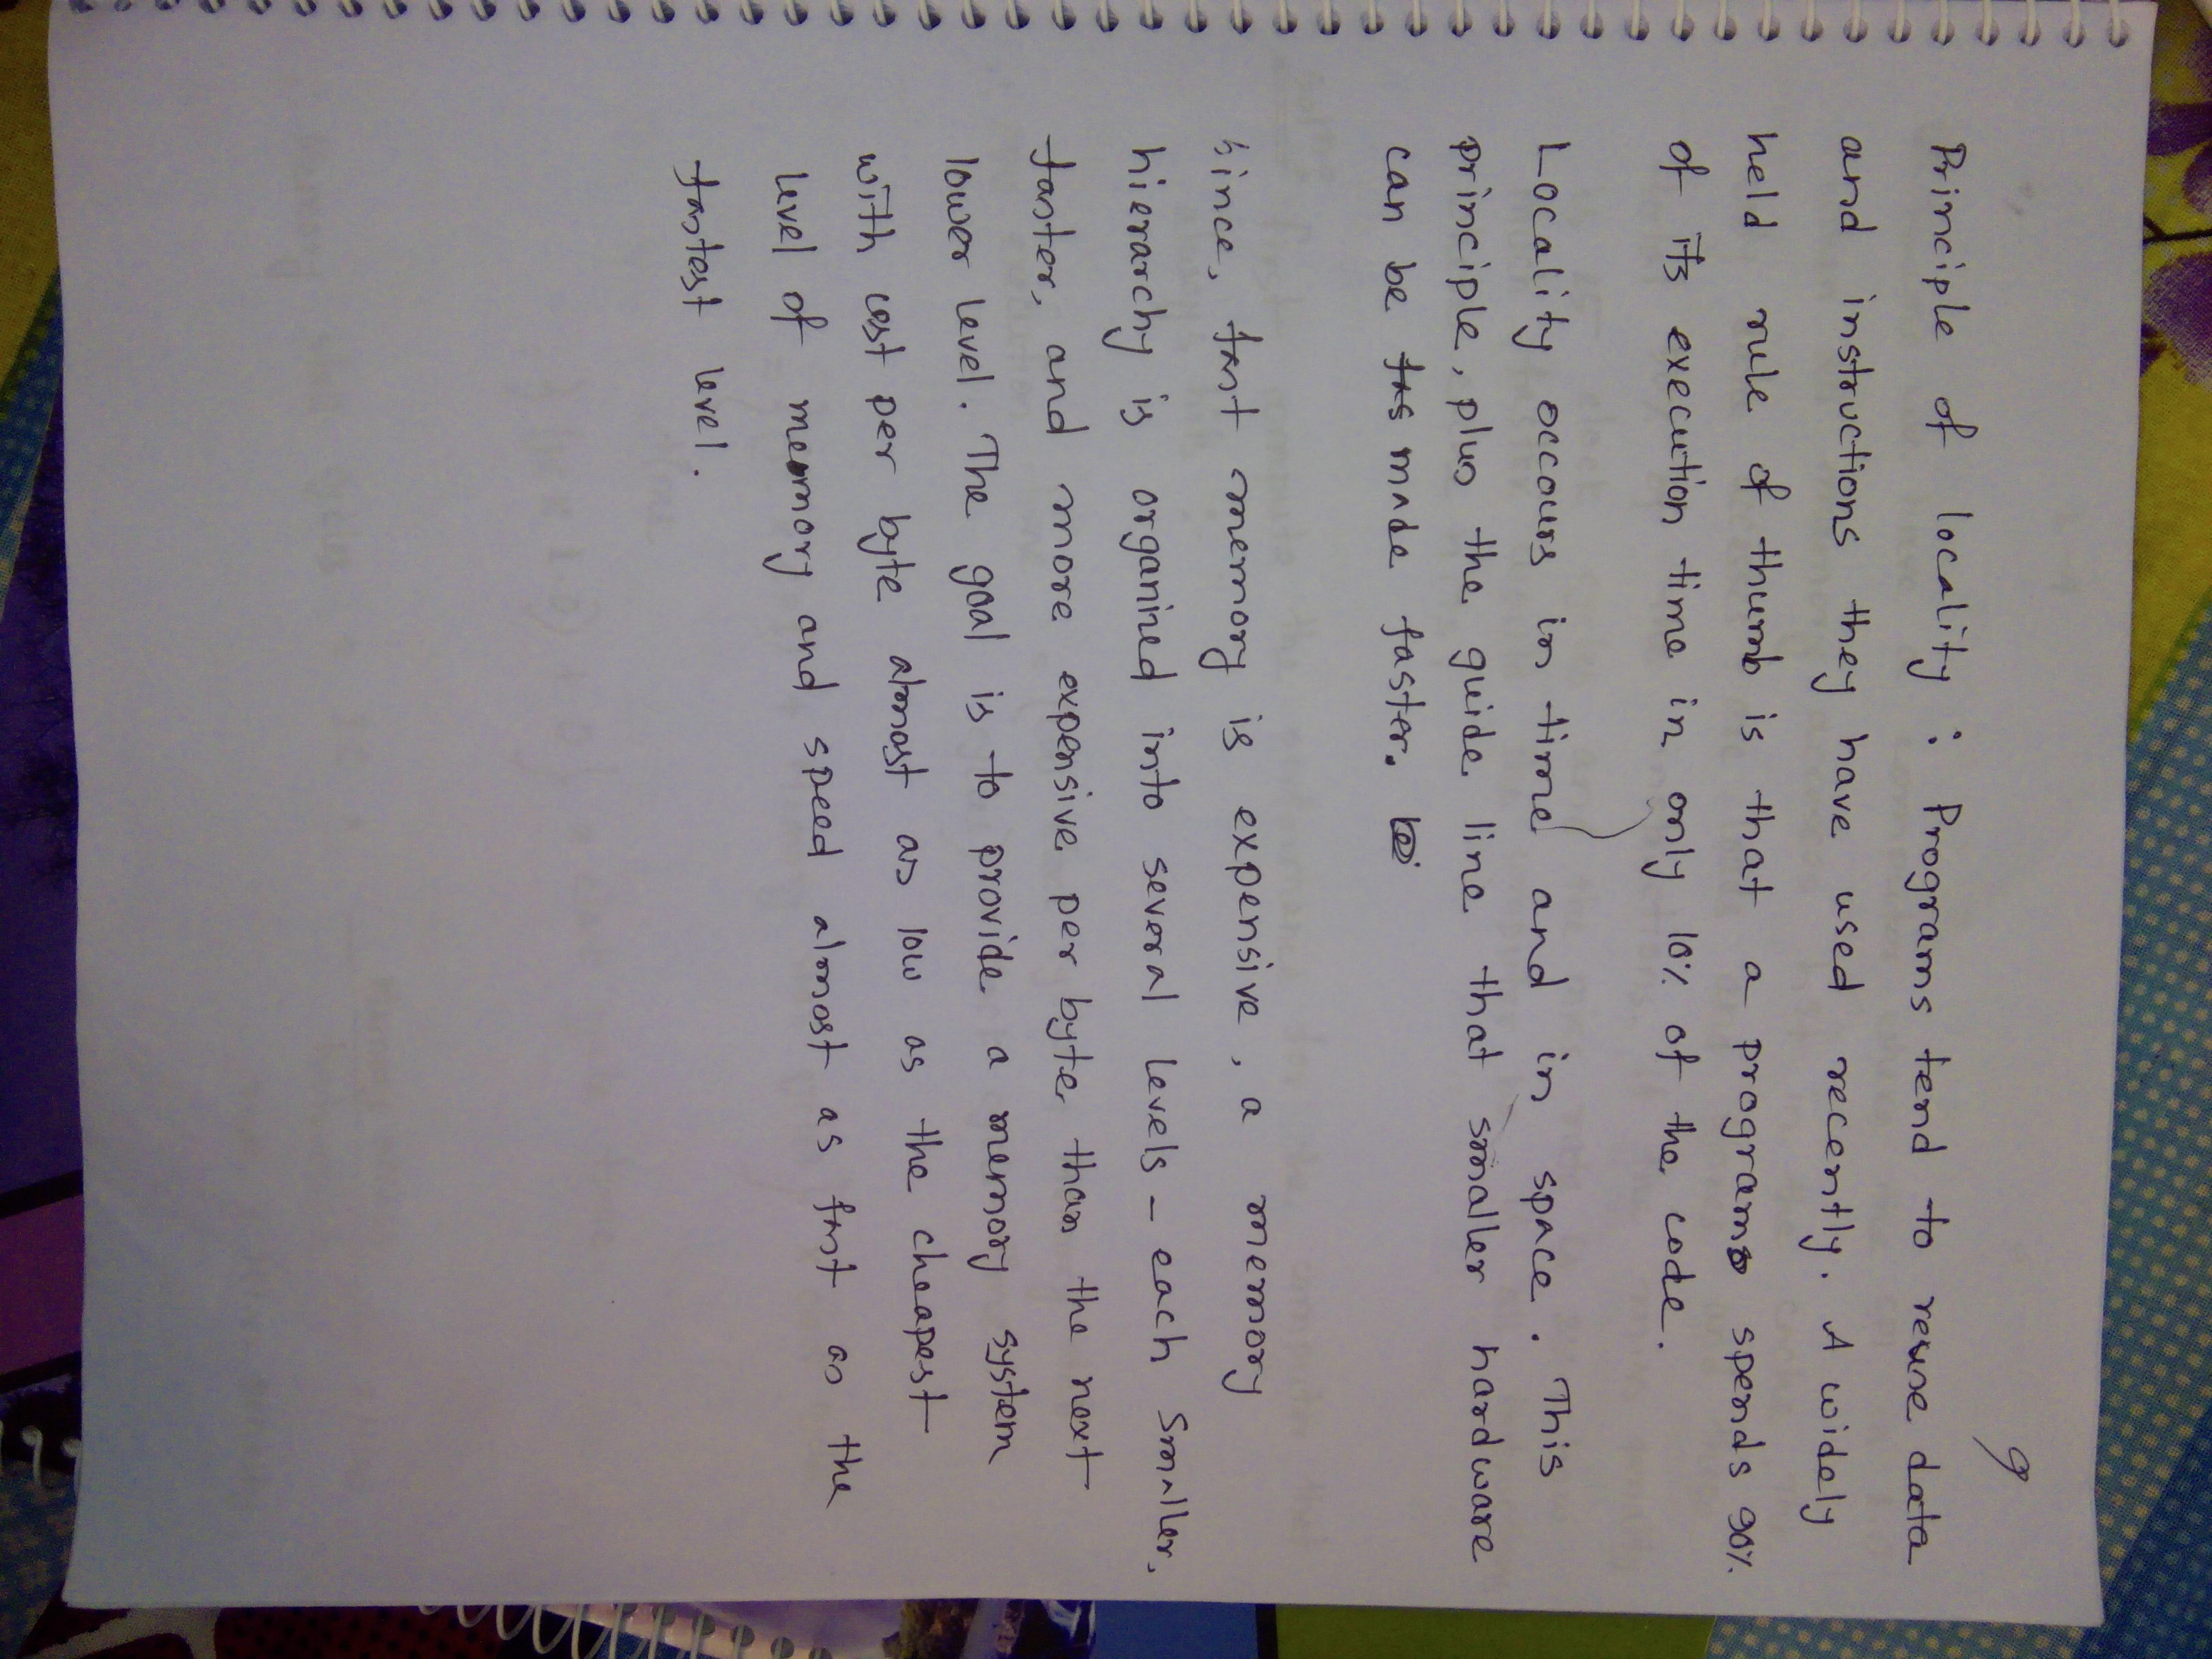 9
Principle of locality : Programs tend to reuse data
and instructions they have used recently. A widely
held rule of thumb is that a program spends 90%
of its execution time in only 10% of the code.
Locality occours in time and in space. This
principle, plus the guide line that smaller hardware
can be made faster.
Since, fast memory is expensive, a memory
hierarchy is organized into several levels - each smaller,
faster, and more expensive per byte than the next
lower level. The goal is to provide a memory system
with cost per byte almost as low as the cheapest
level of memory and speed almost as fast as the
fastest level.